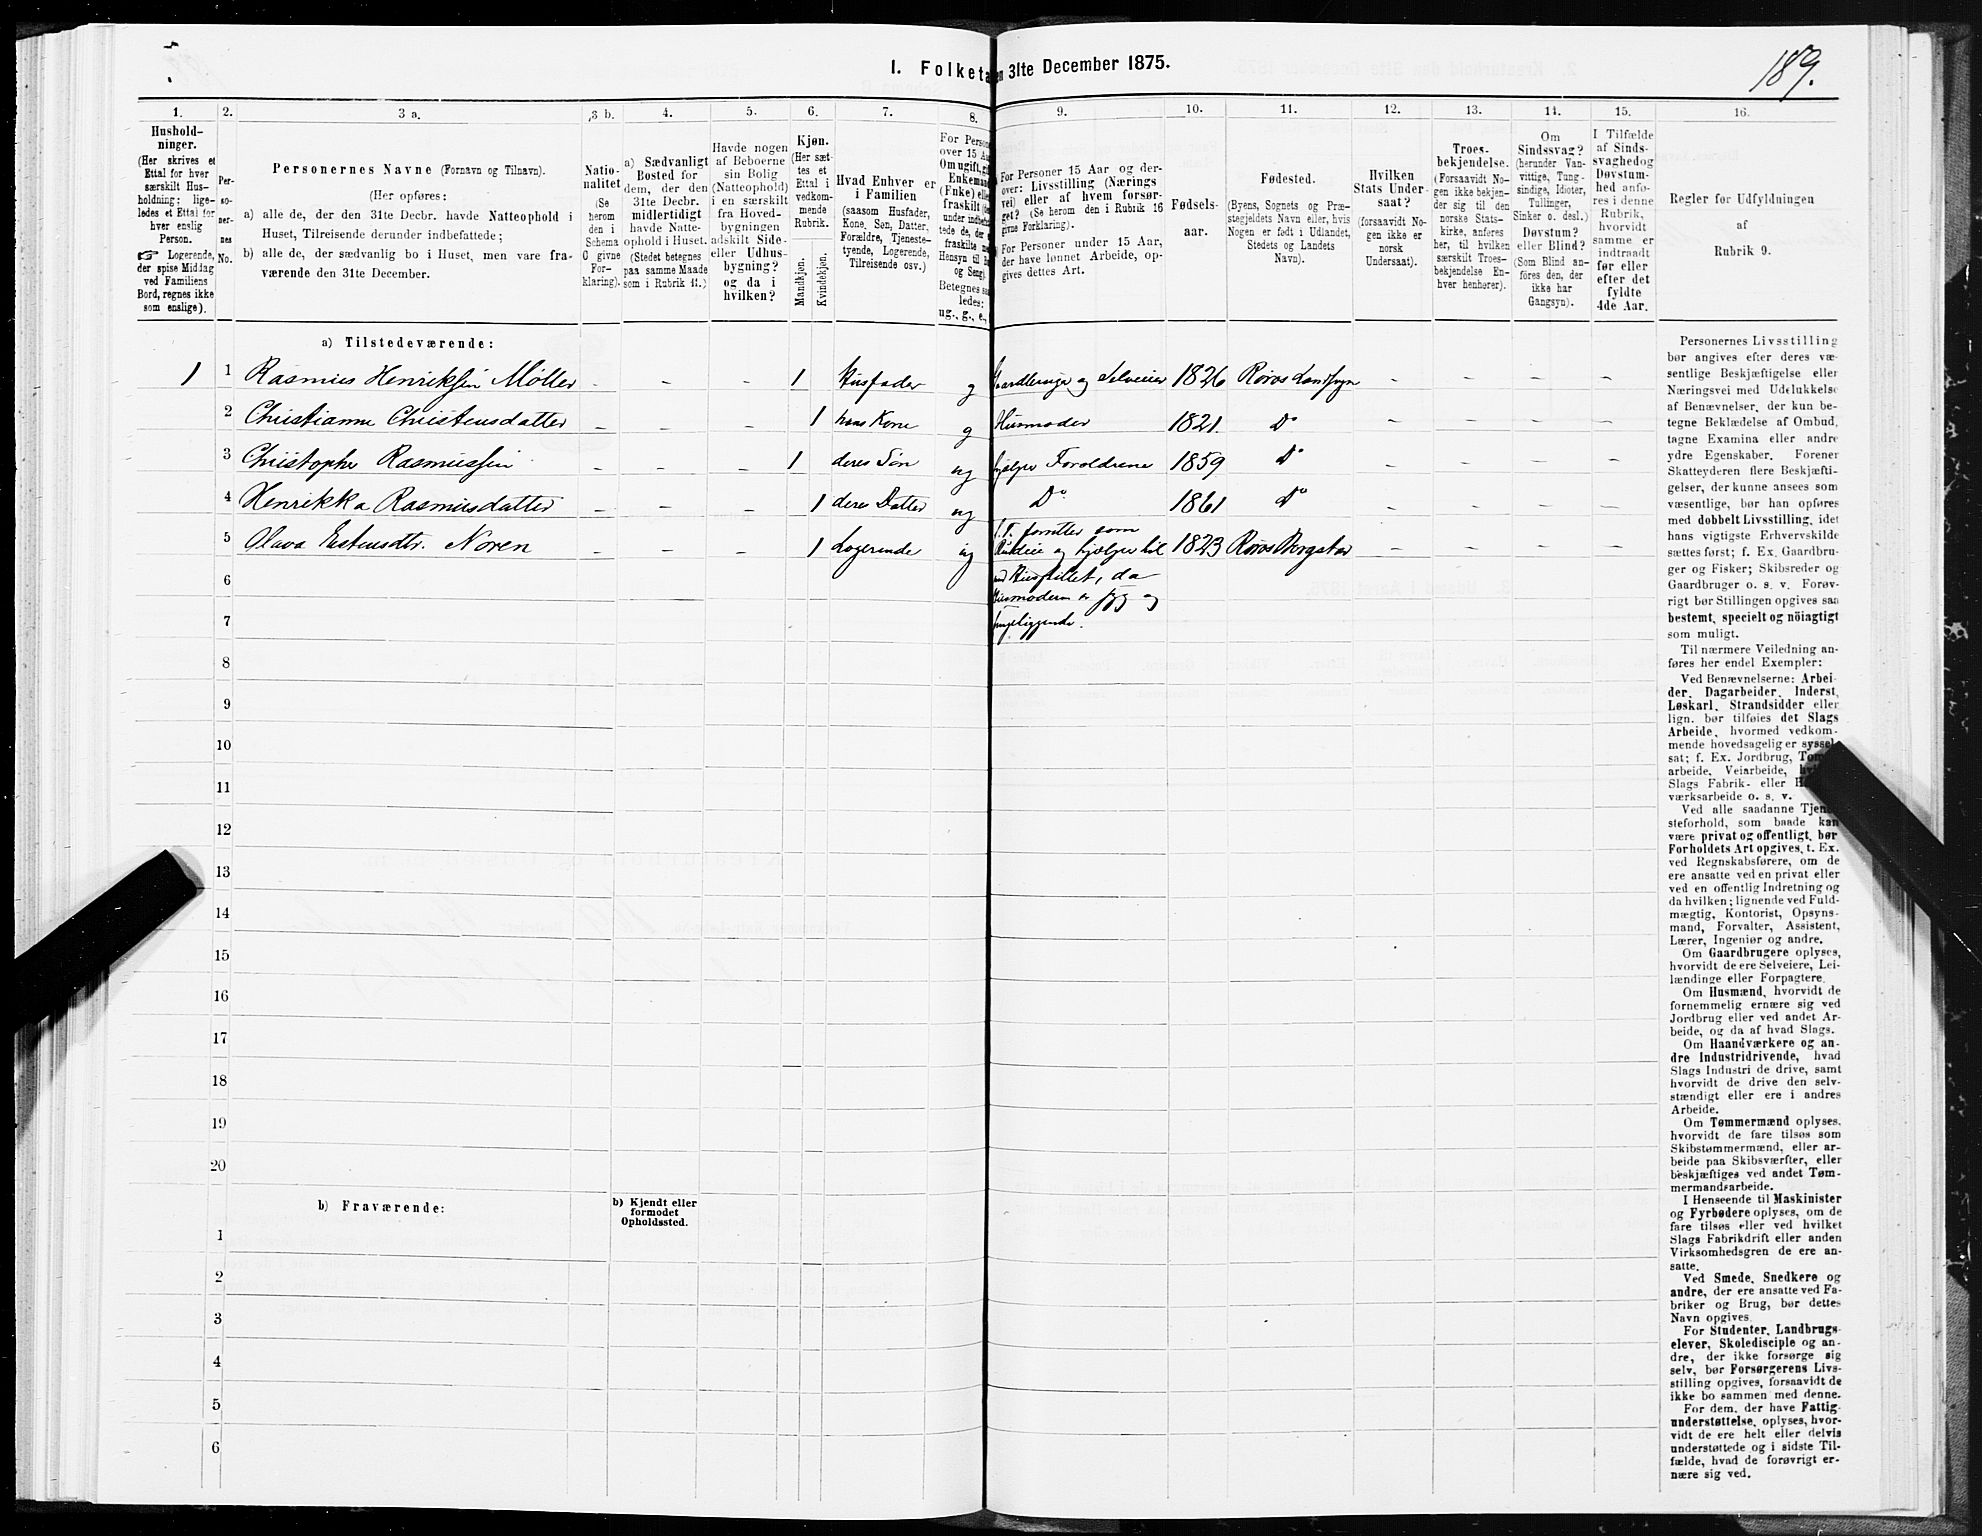 I. Folketa en 31te December 1875.
189.
1.
2.
3 a.
3 b.
4.
5.
6.
7.
8.
9.
10.
11.
12.
13.
14.
15.
16.
Hushold-
ninger.
(Her skrives et
Ettal for hver
særskilt Hus-
holdning; lige-
ledes et Ettal for
hver enslig
Person.
☞ Logerende,
der spise Middag
ved Familiens
Bord, regnes ikke
som enslige).
Per-
so-
ner-
nes
No.
Personernes Navne (Fornavn og Tilnavn).
(Her opføres:
a) alle de, der den 31te Decbr. havde Natteophold i
Huset, Tilreisende derunder indbefattede;
b) alle de, der sædvanlig bo i Huset, men vare fra-
værende den 31te December.
Natio-
nalitet
(Se
herom
den i
Schema
C givne
For-
klaring).
a) Sædvanligt
Bosted for
dem, der den
31te Decbr.
midlertidigt
havde Natte-
ophold i Huset.
(Stedet betegnes
paa samme Maade
som i Rubrik 11.)
Havde nogen
af Beboerne
sin Bolig
(Natteophold)
i en særskilt
fra Hoved-
bygningen
adskilt Side-
eller Udhus-
bygning?
og da i
hvilken?
Kjøn.
(Her sæt-
tes et
Ettal i
vedkom-
mende
Rubrik.
Mandkjøn.
Kvindekjøn.
Hvad Enhver er
i Familien
(saasom Husfader,
Kone, Søn, Datter,
Forældre, Tjeneste-
tyende, Logerende,
Tilreisende osv.)
For Person
over 15 Aa
Om ugift, gif
Enkemand
(Enke) elle
fraskilt (der
under indbefat
tede de, der e
fraskilte me
Hensyn til Bo
og Seng).
Betegnes saa
ledes:
ug., g., e.,
For Personer 15 Aar og der-
over: Livsstilling (Nærings
vei) eller af hvem forsør-
get? (Se herom den i Rubrik 16
givne Forklaring).
For Personer under 15 Aar,
der have lønnet Arbeide, op-
gives dettes Art.
Fødsels-
aar.
Fødested.
(Byens, Sognets og Præ-
stegjeldets Navn eller, hvis
Nogen er født i Udlandet,
Stedets og Landets
Navn).
Hvilken
Stats Under-
saat?
(forsaavidt No-
gen ikke er
norsk
Undersaat).
Troes-
bekjendelse.
(Forsaavidt No-
gen ikke bekjen-
der sig til den
norske Stats-
kirke, anføres
her, til hvilken
særskilt Troes-
bekjendelse En-
hver henhører).
Om
Sindssvag?
(herunder Van-
vittige, Tung-
sindige, Idioter,
Tullinger,
Sinker o. desl.)
Døvstum?
eller Blind?
(Som Blind an-
føres den, der
ikke har
Gangsyn).
I Tilfælde
af Sinds-
svaghed og
Døvstum-
hed anfø-
res i denne
Rubrik,
hvorvidt
samme er
indtraadt
før eller
efter det
fyldte
4de Aar.
Regler før Udfyldningen
af
Rubrik 9.
a) Tilstedeværende:
1 1 Rasmus Henriksen Møller - - - 1 Husfader g Gaardbruger og Selveier 1826 Røros Landsogn - - - -
2 Christianne Christensdatter - - - 1 hans Kone g Husmoder 1821. Do - - - -
3 Christopher Rasmussen - - - 1 deres Søn ug hjælper Foroldrene 1859 Do - - - -
4 Henrikka Rasmusdatter - - - 1 deres Datter ug Do 1861 Do - - - -
5 Olava Estensdtr. Noren - - - 1 Logerende ug f. T. forretter som
Budeie og hjælper til 1823 Røros Bergstad - - - -
6 med Husstillet, da
Husmoderen er syg og
7 sengeliggende.
8
9
10
11
12
13
14
15
16
17
18
19
20
b) Fraværende:
b) Kjendt eller
formodet
Opholdssted.
1
2
3
4
5
6
Personernes Livsstilling
bør angives efter deres væ-
sentlige Beskjæftigelse eller
Næringsvei med Udelukkelse
af Benævnelser, der kun be-
tegne Beklædelse af Ombud,
tagne Examina eller andre
ydre Egenskaber. Forener
Skatteyderen flere Beskjæfti-
gelser, der kunne ansees som
væsentlige, bør han opføres
med dobbelt Livsstilling, idet
hans vigtigste Erhvervskilde
sættes først; f. Ex. Gaardbru-
ger og Fisker; Skibsreder og
Gaardbruger o. s. v. Forøv-
rigt bør Stillingen opgives saa
bestemt, specielt og nöiagtigt
som muligt.
Til nærmere Veiledning an-
føres her endel Exempler:
Ved Benævnelserne: Arbei-
der, Dagarbeider, Inderst,
Løskarl, Strandsidder eller
lign. bør tilføies det Slags
Arbeide, hvormed vedkom-
mende hovedsagelig er syssel-
sat; f. Ex. Jordbrug, Tøm
arbeide, Veiarbeide, hvi
Slags Fabrik- eller H
værksarbeide o. s. v.
Ved alle saadanne Tjene-
steforhold, som baade kan
være privat og offentligt, bør
Forholdets Art opgives, t. Ex.
ved Regnskabsførere, om de
ere ansatte ved en privat eller
ved en offentlig Indretning og
da hvilken; lignende ved Fuld-
mægtig, Kontorist, Opsyns-
mand, Forvalter, Assistent,
Lærer, Ingeniør og andre.
Om Gaardbrugere oplyses,
hvorvidt de ere Selveiere, Lei-
lændinge eller Forpagtere.
Om Husmænd, hvorvidt de
fornemmelig ernære sig ved
Jordbrug eller ved andet Ar-
beide, og da af hvad Slags.
Om Haandværkere og an-
dre Industridrivende, hvad
Slags Industri de drive, samt
hvorvidt de drive den selv-
stændigt eller ere i andres
Arbeide.
Om Tømmermænd oplyses,
hvorvidt de fare tilsøs som
Skibstømmermænd, eller ar-
beide paa Skibsværfter, eller
beskjæftiges ved andet Tøm-
mermandsarbeide.
I Henseende til Maskinister
og Fyrbødere oplyses, om de
fare tilsøs eller ved hvilket
Slags Fabrikdrift eller anden
Virksomhedsgren de ere an-
satte.
Ved Smede, Snedkere og
andre, der ere ansatte ved Fa-
briker og Brug, bør dettes
Navn opgives.
For Studenter, Landbrugs-
elever, Skoledisciple og an-
dre, der ikke forsørge sig
selv, bør Forsørgerens Livs-
stilling opgives, forsaavidt de
ikke bo sammen med denne.
For dem, der have Fattig-
understøttelse, oplyses, hvor-
vidt de ere helt eller delvis
understøttede og i sidste Til-
fælde, hvad de forøvrigt er-
nære sig ved.